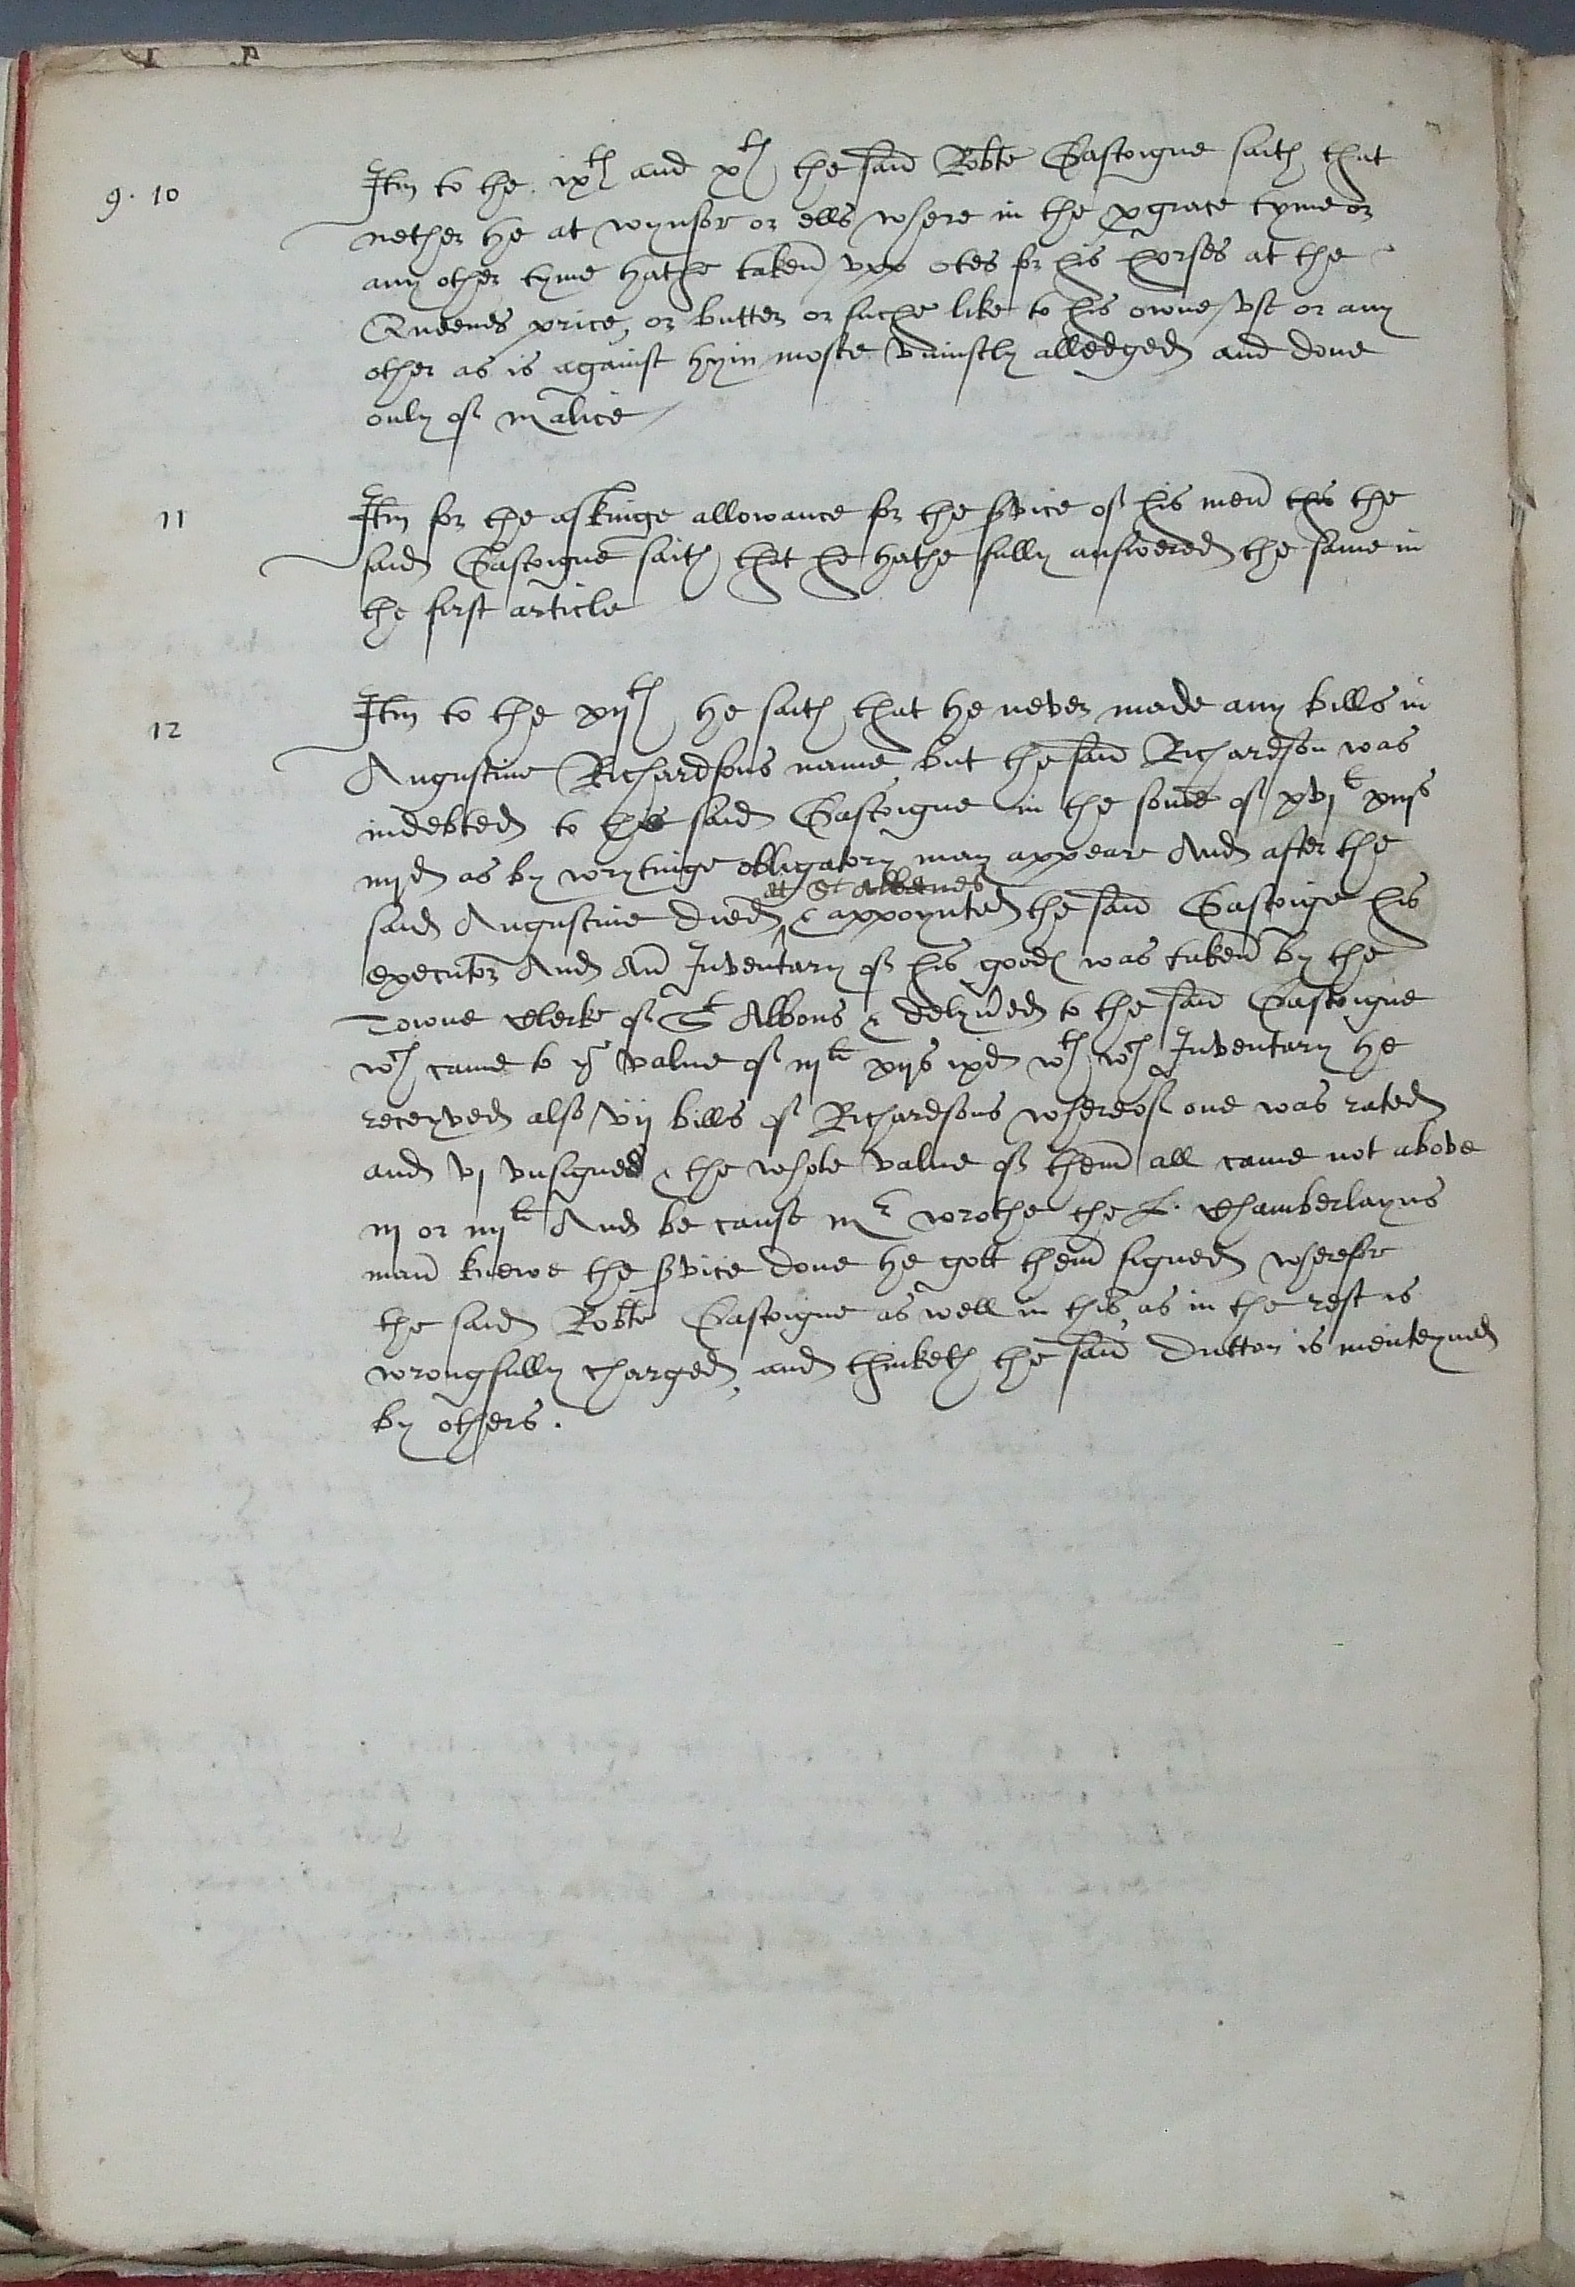 9 . 10
Itm to the ixth and xth the said Robte Gascoigne saith that
nether he at wynsor or ells where in the pgrace tyme or
any other tyme hathe taken vpp otes for his horses at the
Queenes price, or butter or suche like to his owne vse or any
other as is against hym moste vniustly alledged and done
only of malice
11
Itm for the askinge allowance for the svice of his men this the
said Gascoigne saith that he hathe fully answered the same in
the first article
12
Itm to the xijth he saith that he never made any bills in
Augustine Richardsons name but the said Richardson was
indebted to the said Gascoigne in the some of xvjli xiijs
iiijd as by wrytinge obligatory may appeare And after the
at St Albanes
said Augustine died & appoynted the said Gascoige his
executor And An Inventary of his goodes was taken by the
Towne Clerke of St Albons & delyved to the said Gascoigne
wch came to ye value of iijli xijs ixd wth wch Inventary he
receyved also vij bills of Richardsons whereof one was rated
and vj vnsigned & the whole value of them all came not above
iij or iiijli And be cause Mr wrothe the L. Chamberlayns
man knewe the svice done he gott them signed wherefore
the said Robte Gascoigne as well in this, as in the rest is
wrongfully charged, and thinketh the said Dutton is menteyned
by others .